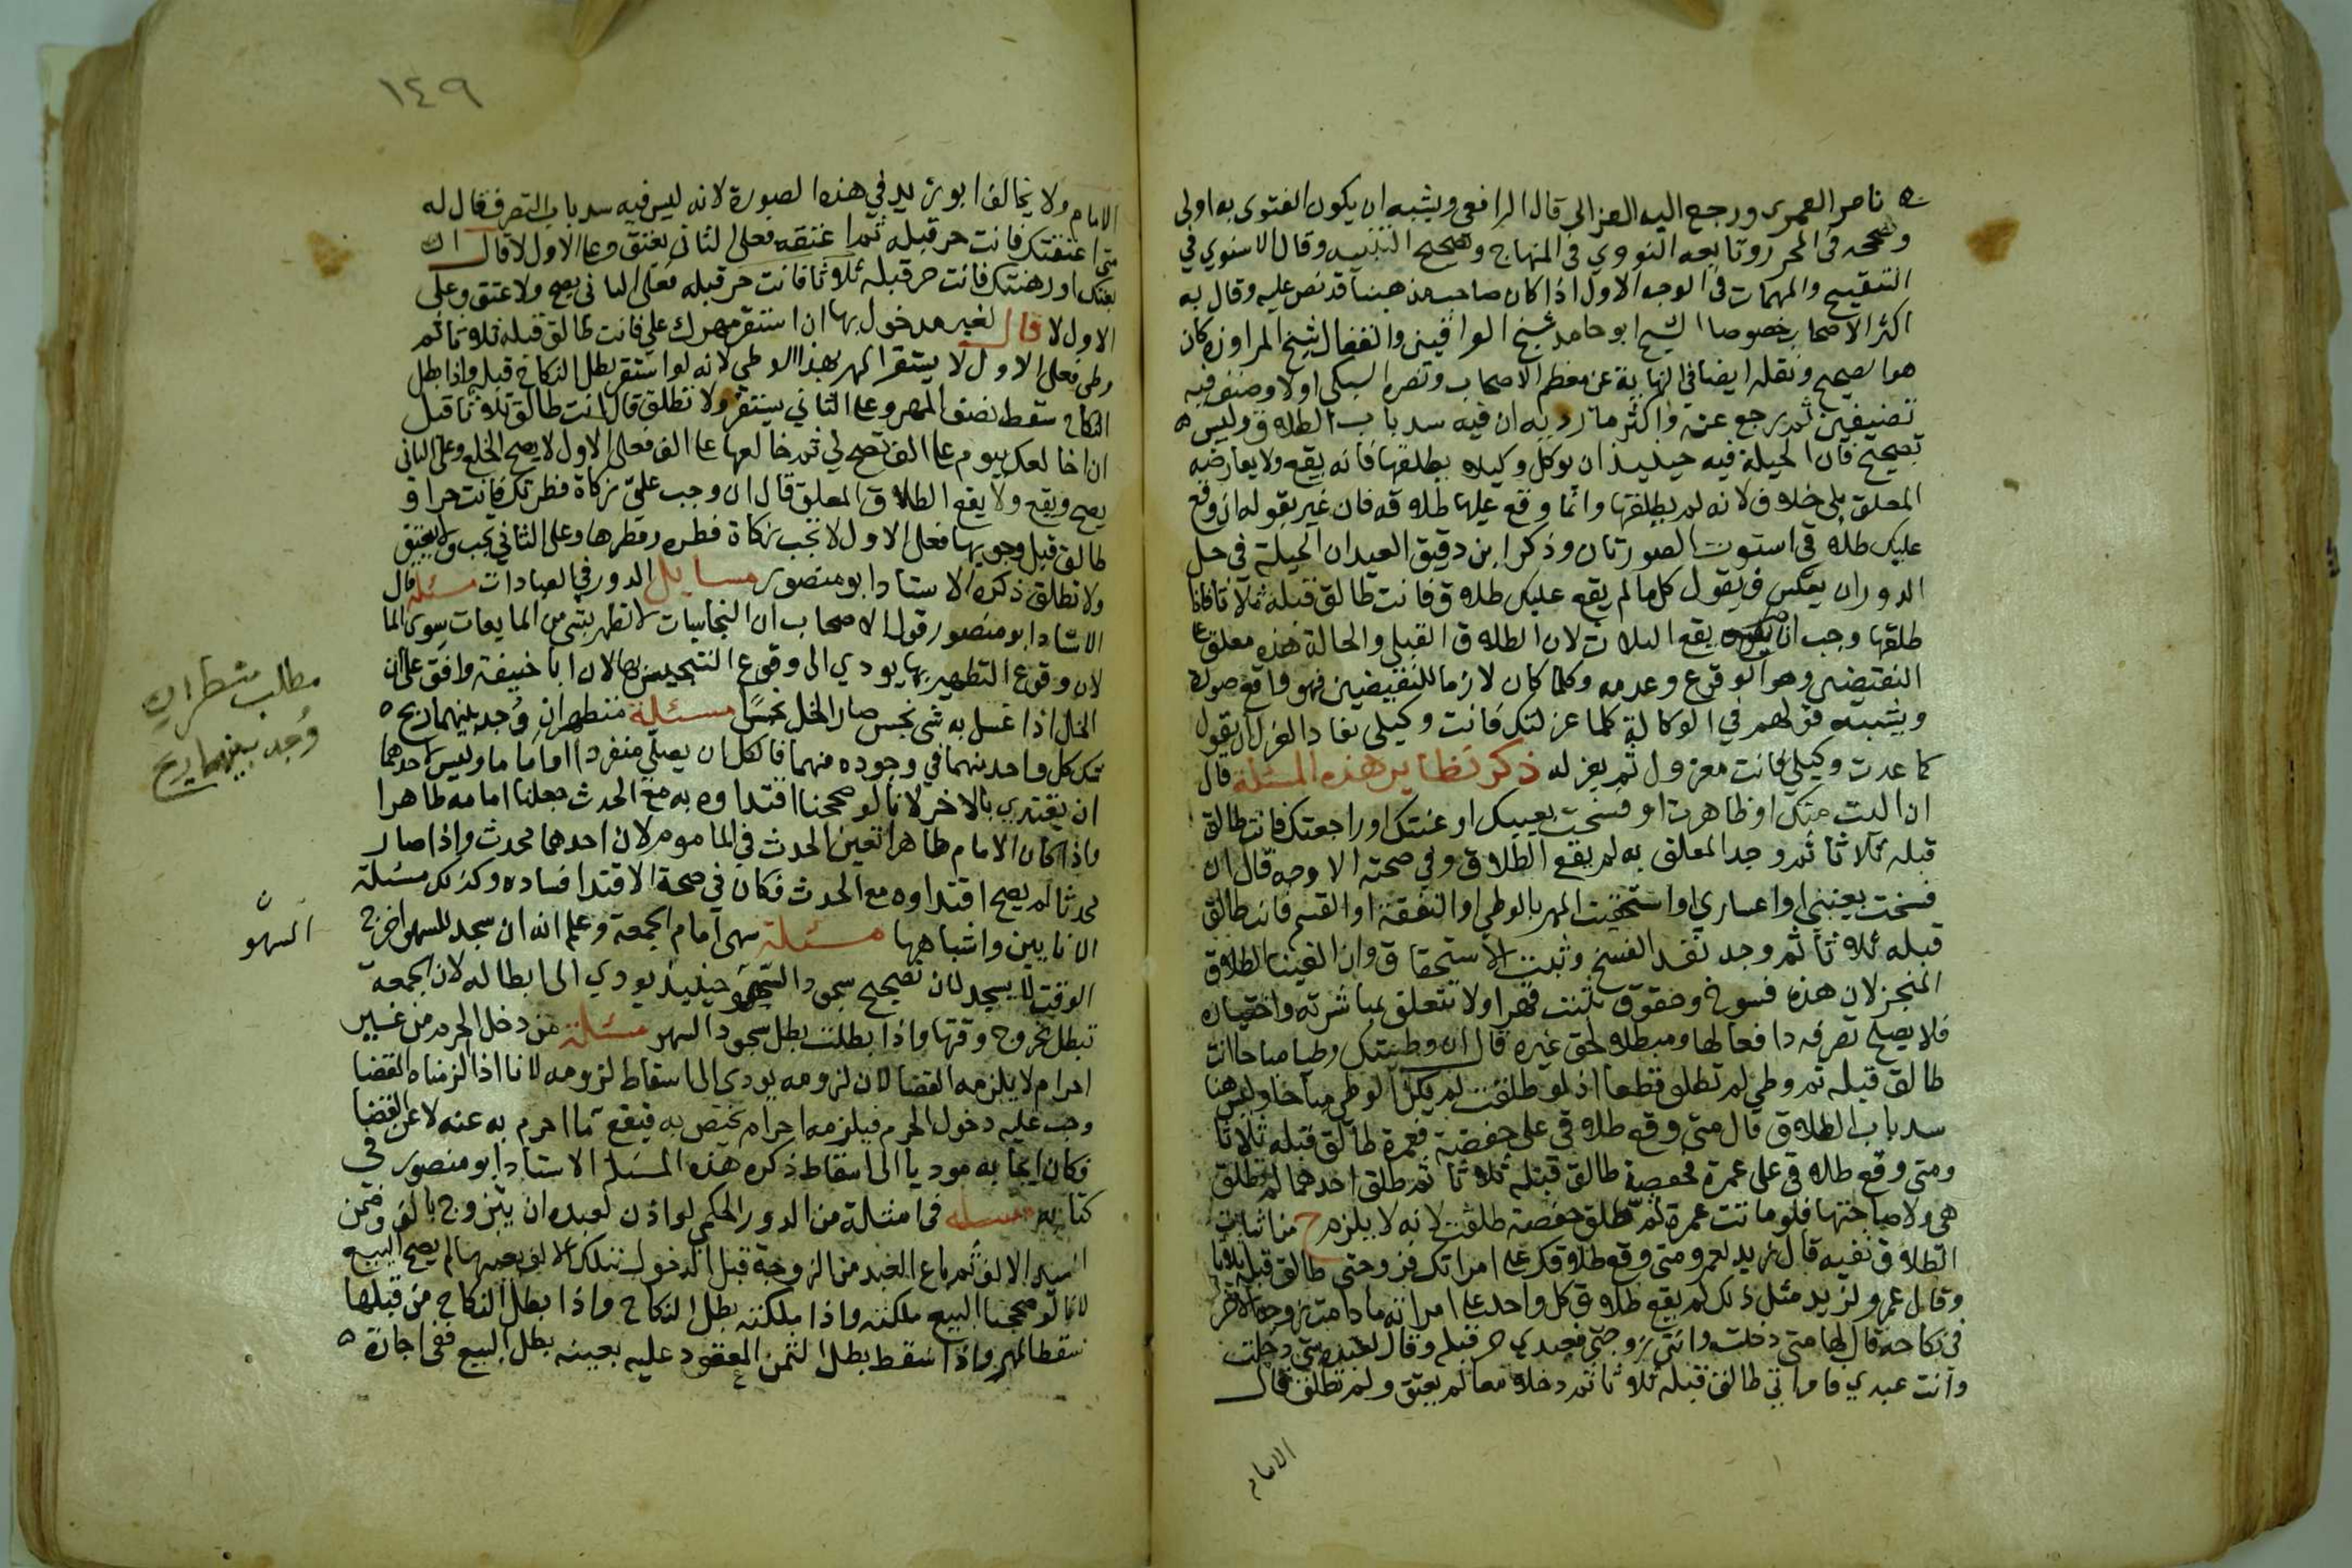 ناصر العمرى ورجع اليه الغزالى قال الرافعى ويشبه ان يكون الفتوى به اولى
وصححه فى المحرر وتابعه النووي فى المنهاج وتصحيح التنبيه وقال الاسنوي في
التنقيح والمهمات فى الوجه الاول اذا كان صاحب مذهبنا قد نص عليه وقال به
اكثر الاصحاب خصوصا الشيخ ابو حامد شيخ العراقيين والقفال شيخ المراوزة كان
هو الصحيح ونقله ايضا فى النهاية عن معظم الاصحاب ونصره السبكى اولا وصنف فيه
تصنيفين ثم رجع عنه واكثر ما رد به ان فيه سد باب الطلاق وليس
بصحيح فان الحيلة فيه حينيذ ان يوكل وكيلا بطلاقها فانه يقع ولا يعارضه
المعلق بلى خلاف لانه لم يطلقها وانما وقع عليها طلاقه فان غير بقوله ان وقع
عليك طلاقى استوت الصورتان وذكر ابن دقيق العيد ان الحيلة فى حل
الدور ان يعكس فيقول كلما لم يقع عليك طلاق فانت طالق قبله ثلاثا فاذا
طلقها وجب ان يقع الثلاث لان الطلاق القبلى والحالة هذه معلق على
النقيضين وهو الوقوع وعدمه وكلما كان لازما للنقيضين فهو واقع ضرورة
ويشبهه قولهم فى الوكالة كلما عزلتك فانت وكيلى نفاذ العزل ان يقول
كلما عدت وكيلى فانت معزول ثم يعزله ذكر نظاير هذه المسئلة قال
ان اليت منك او ظاهرت او فسخت بعيبك او عنتك او راجعتك فانت طالق
قبله ثلاثا ثم وجد المعلق به لم يقع الطلاق وفي صحته الاوجه قال ان
فسخت بعنتي او اعساري او استحقيت المهر بالوطي او النفقة او القسم فانت طالق
قبله ثلاثا ثم وجد نفذ الفسخ وثبت الاستحقاق وان الغينا الطلاق
المنجز لان هذه فسوخ وحقوق تثبت قهرا ولا تتعلق بمباشرته واختياره
فلا يصلح تصرفه دافعا لها ومبطلا لحق غيره قال ان وطيتك وطيا مباحا فانت
طالق قبله ثم وطى لم تطلق قطعا اذ لو طلقت لم يكن الوطى مباحا وليس هنا
سد باب الطلاق قال متى وقع طلاقى على حفصة فعمرة طالق قبله ثلاثا
ومتى وقع طلاقى على عمرة فحفصة طالق قبله ثلاثا ثم طلق احدهما لم تطلق
هى ولا صاحبتها فلو ماتت عمرة ثم طلق حفصة طلقت لانه لا يلزم ح من اثبات
الطلاق نفيه قال زيد لعمرو متى وقع طلاقك على امراتك فزوجتى طالق قبله ثلاثا
وقال عمرو لزيد مثل ذلك لم يقع طلاق كل واحد على امراته ما دامت زوجة الاخر
فى نكاحه قال لها متى دخلت وانتى زوجتى فعبدي حر قبله وقال لعبده متى دخلت
وانت عبدي فامراتي طالق قبله ثلاثا ثم دخلا معا لم يعتق ولم تطلق قال
الامام
١٤٩
الامام ولا يخالف ابو زيد في هذه الصورة لانه ليس فيه سد باب التصرف قال له
متى اعتقتك فانت حر قبله ثم اعتقه فعلى الثانى يعتق وعلى الاول لا قال ان
بعتك او رهنتك فانت حر قبله ثلاثا فانت حر قبله فعلى الثانى يصح ولا عتق وعلى
الاول لا قال لغير مدخول بها ان استقر مهرك على فانت طالق قبله ثلاثا ثم
وطى فعلى الاول لا يستقر المهر بهذا الوطى لانه لو استقر بطل النكاح قبله واذا بطل
النكاح سقط نصف المهر وعلى الثاني يستقر ولا تطلق قال انت طالق ثلاثا قبل
ان اخالعك بيوم على الف تصح لي ثم خالعها على الف فعلى الاول لا يصح الخلع وعلى الثانى
يصح ويقع ولا يقع الطلاق المعلق قال ان وجب على زكاة فطرتك فانت حر او
طالق قبل وجوبها فعلى الاول لا تجب زكاة فطره وفطرها وعلى الثاني تجب ولا يعتق
ولا تطلق ذكره الاستاد ابو منصور مسايل الدور في العبادات مسئلة قال
الاستاد ابو منصور قول الاصحاب ان النجاسات لا تطهر بشى من المايعات سوى الما
لان وقوع التطهير بها يودي الى وقوع التنجيس بها لان ابا حنيفة وافق على ان
الخل اذا غسل به شى نجس صار الخل نجسا مسئلة متطهران وجد بينهما ريح
شك كل واحد منهما في وجوده منهما فالكل ان يصلى منفردا او اماما وليس لاحدهما
ان يقتدي بالاخر لانا لو صححنا اقتداوه به مع الحدث جعلنا امامه طاهرا
واذا كان الامام طاهرا تعين الحدث في الماموم لان احدهما محدث واذا صار
محدثا لم يصح اقتداوه مع الحدث فكان في صحة الاقتدا فساده وكذلك مسئلة
الانايين واشباهها مسئلة سهى امام الجمعة وعلم انه ان سجد للسهو اخرج
الوقت لا يسجد لان تصحيح سجود السهو حينيذ يودي الى ابطاله لان الجمعة
تبطل بخروج وقتها واذا بطلت بطل سجود السهو مسئلة من دخل الحرم من غير
احرام لا يلزمه القضا لان لزومه يودى الى اسقاط لزومه لانا اذا الزمناه القضا
وجب عليه دخول الحرم فيلزمه احرام يختص به فيقع ما احرم به عنه لا عن القضا
فكان ايجابه موديا الى اسقاط ذكره هذه المسئلة الاستاد ابو منصور في
كتابه مسئلة فى امثلة من الدور الحكمى لو اذن لعبده ان يتزوج بالف وضمن
السيد الالف ثم باع العبد من الزوجة قبل الدخول بتلك الالف بعينها لم يصح البيع
لانا لو صححنا البيع ملكته واذا ملكته بطل النكاح واذا بطل النكاح من قبلها
سقط المهر واذا سقط بطل الثمن المعقود عليه بعينه بطل البيع ففى اجازة
مطلب متطهران
وُجد بينهما ريح
السهو